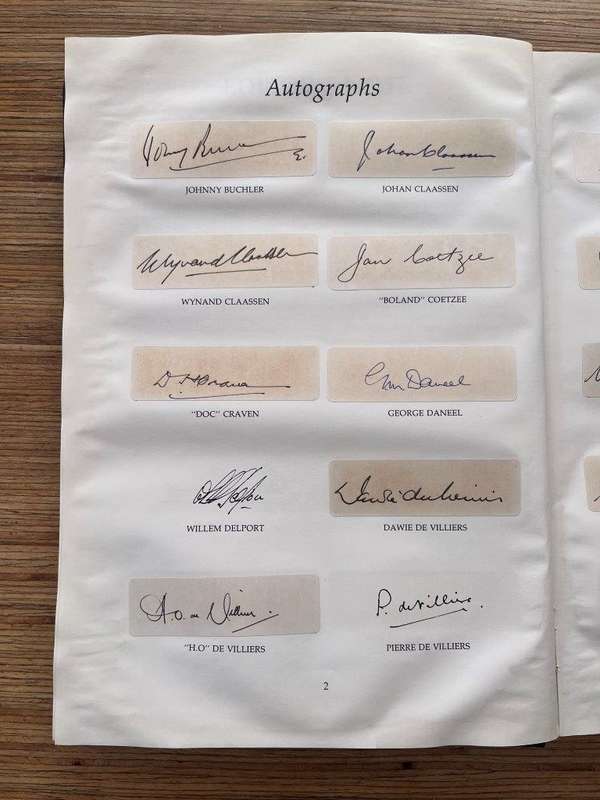 Autographs
Johnny Buchler
JOHNNY BUCHLER
Johan Claassen
JOHAN CLAASSEN
Wynand Claassen
WYNAND CLAASSEN
Jan Coetzee
"BOLAND" COETZEE
D H Craven
"DOC" CRAVEN
Geo Daneel
GEORGE DANEEL
WILLEM DELPORT
Dawie de Villiers
DAWIE DE VILLIERS
H.O. de Villiers.
"H.O" DE VILLIERS
P. de Villiers.
PIERRE DE VILLIERS
2